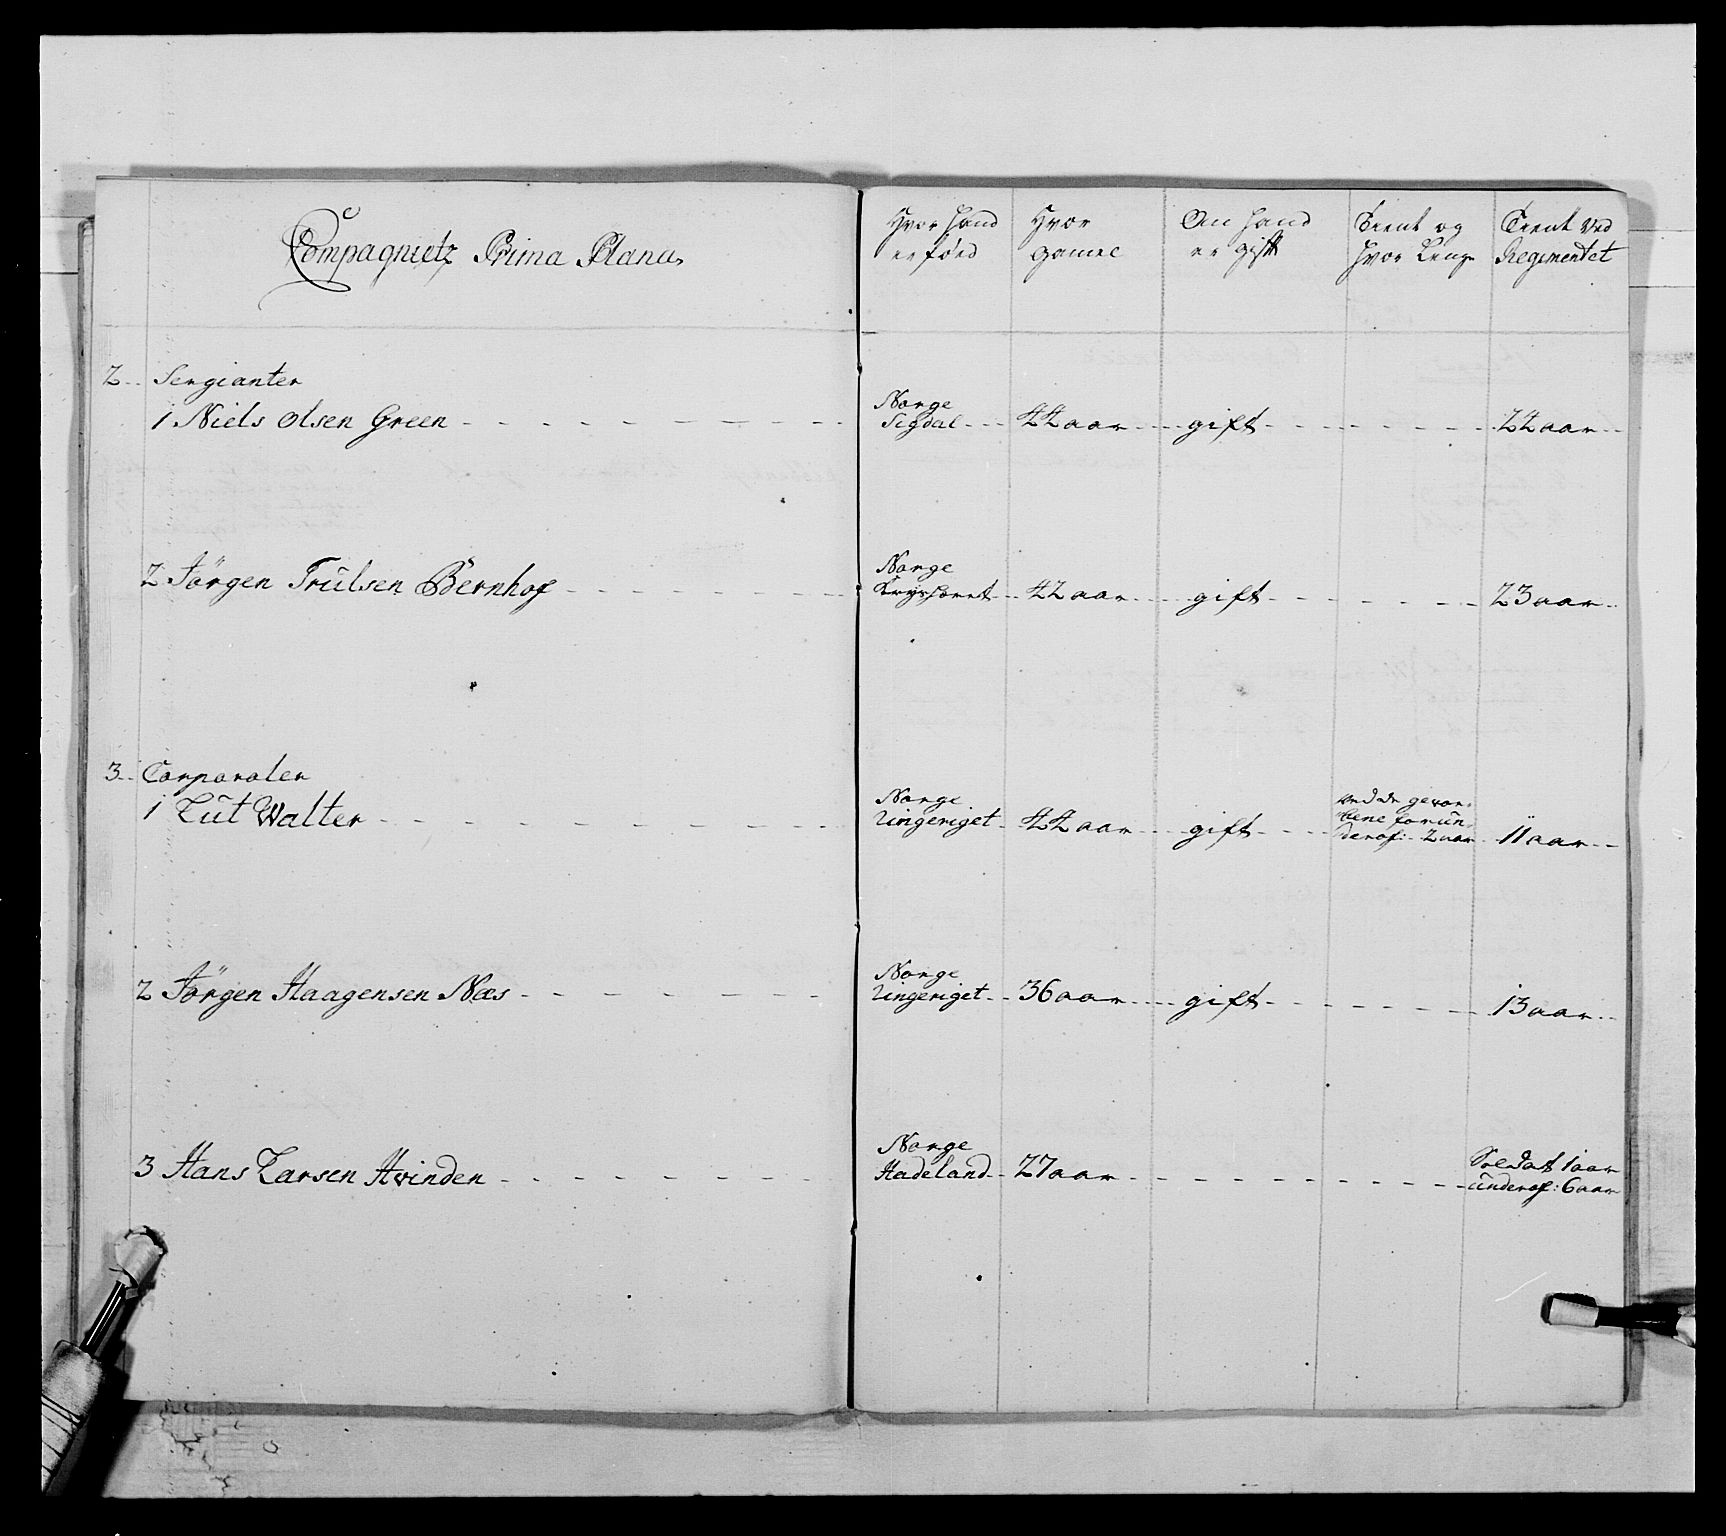 Compagnietz Prima Plana
Hvor hand er født
Hvor gamel
Om hand er gift
Tient og hvor lenge
Tient ved Regimentet
2.. Sergianter
1 Niels Olsen Green
Norge
Sigdal
44 aar
gift
24 aar
2 Jörgen Trulsen Bernhof
Norge
42 aar
gift
23 aar
3.. Corporaler
1 Lut Walter
Norge
Ringeriget
44 aar
gift
ved de gevor-
bene for un-
derof: 2 aar
11 aar
2 Jörgen Haagensen Næs
Norge
Ringeriget
36 aar
gift
13 aar
3 Hans Larsen Hvinden
Norge
Hadeland
27 aar
Soldat 1 aar
underof: 6 aar